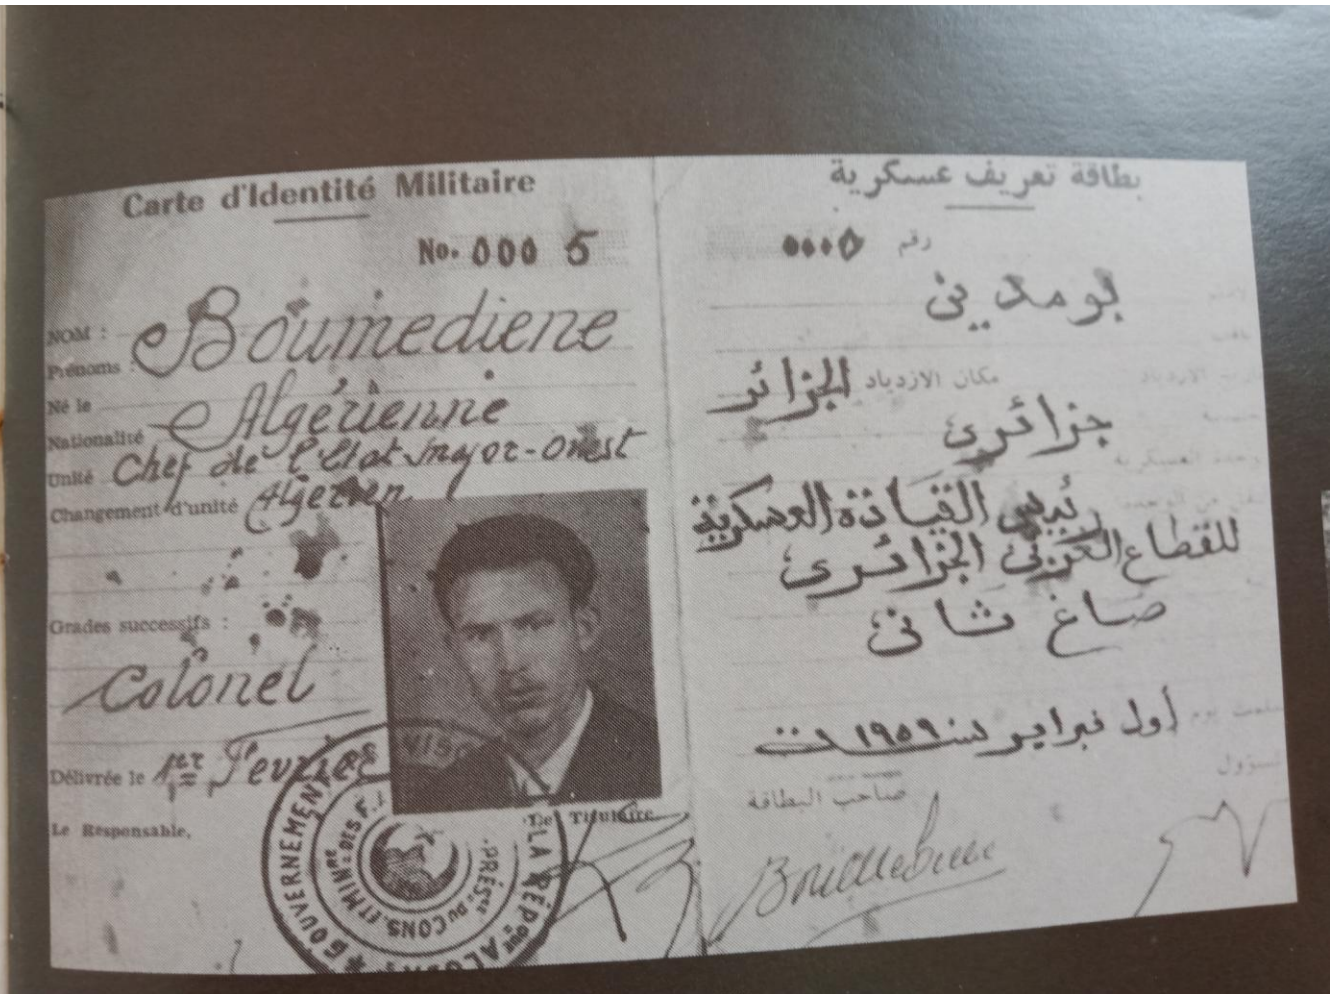 Carte d'Identité Militaire
No. 000 5
NOM :
Prénoms :
Boumediene
Né le
Nationalité
Algérienne
Unité Chef de l'Etat major-ouest
Changement d'unité Algerien
Grades successifs :
Colonel
Délivrée le 1er Fevrier
Le Responsable,
Le Titulaire
GOUVERNEMENT
LA RÉPque
PRÉSce DU CONS. ET MINre DES F.
بطاقة تعريف عسكرية
رقم ٠٠٠٥
بومدين
مكان الازدياد الجزائر
جزائرى
رئيس القيادة العسكرية
للقطاع الغربى الجزائرى
صاغ ثانى
أول فبراير سنة ١٩٥٩
صاحب البطاقة